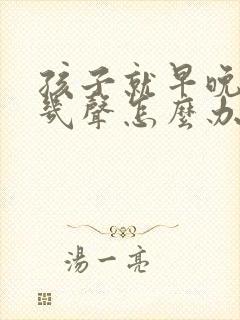 孩子就早晚
幾聲怎麼办
湯一亮